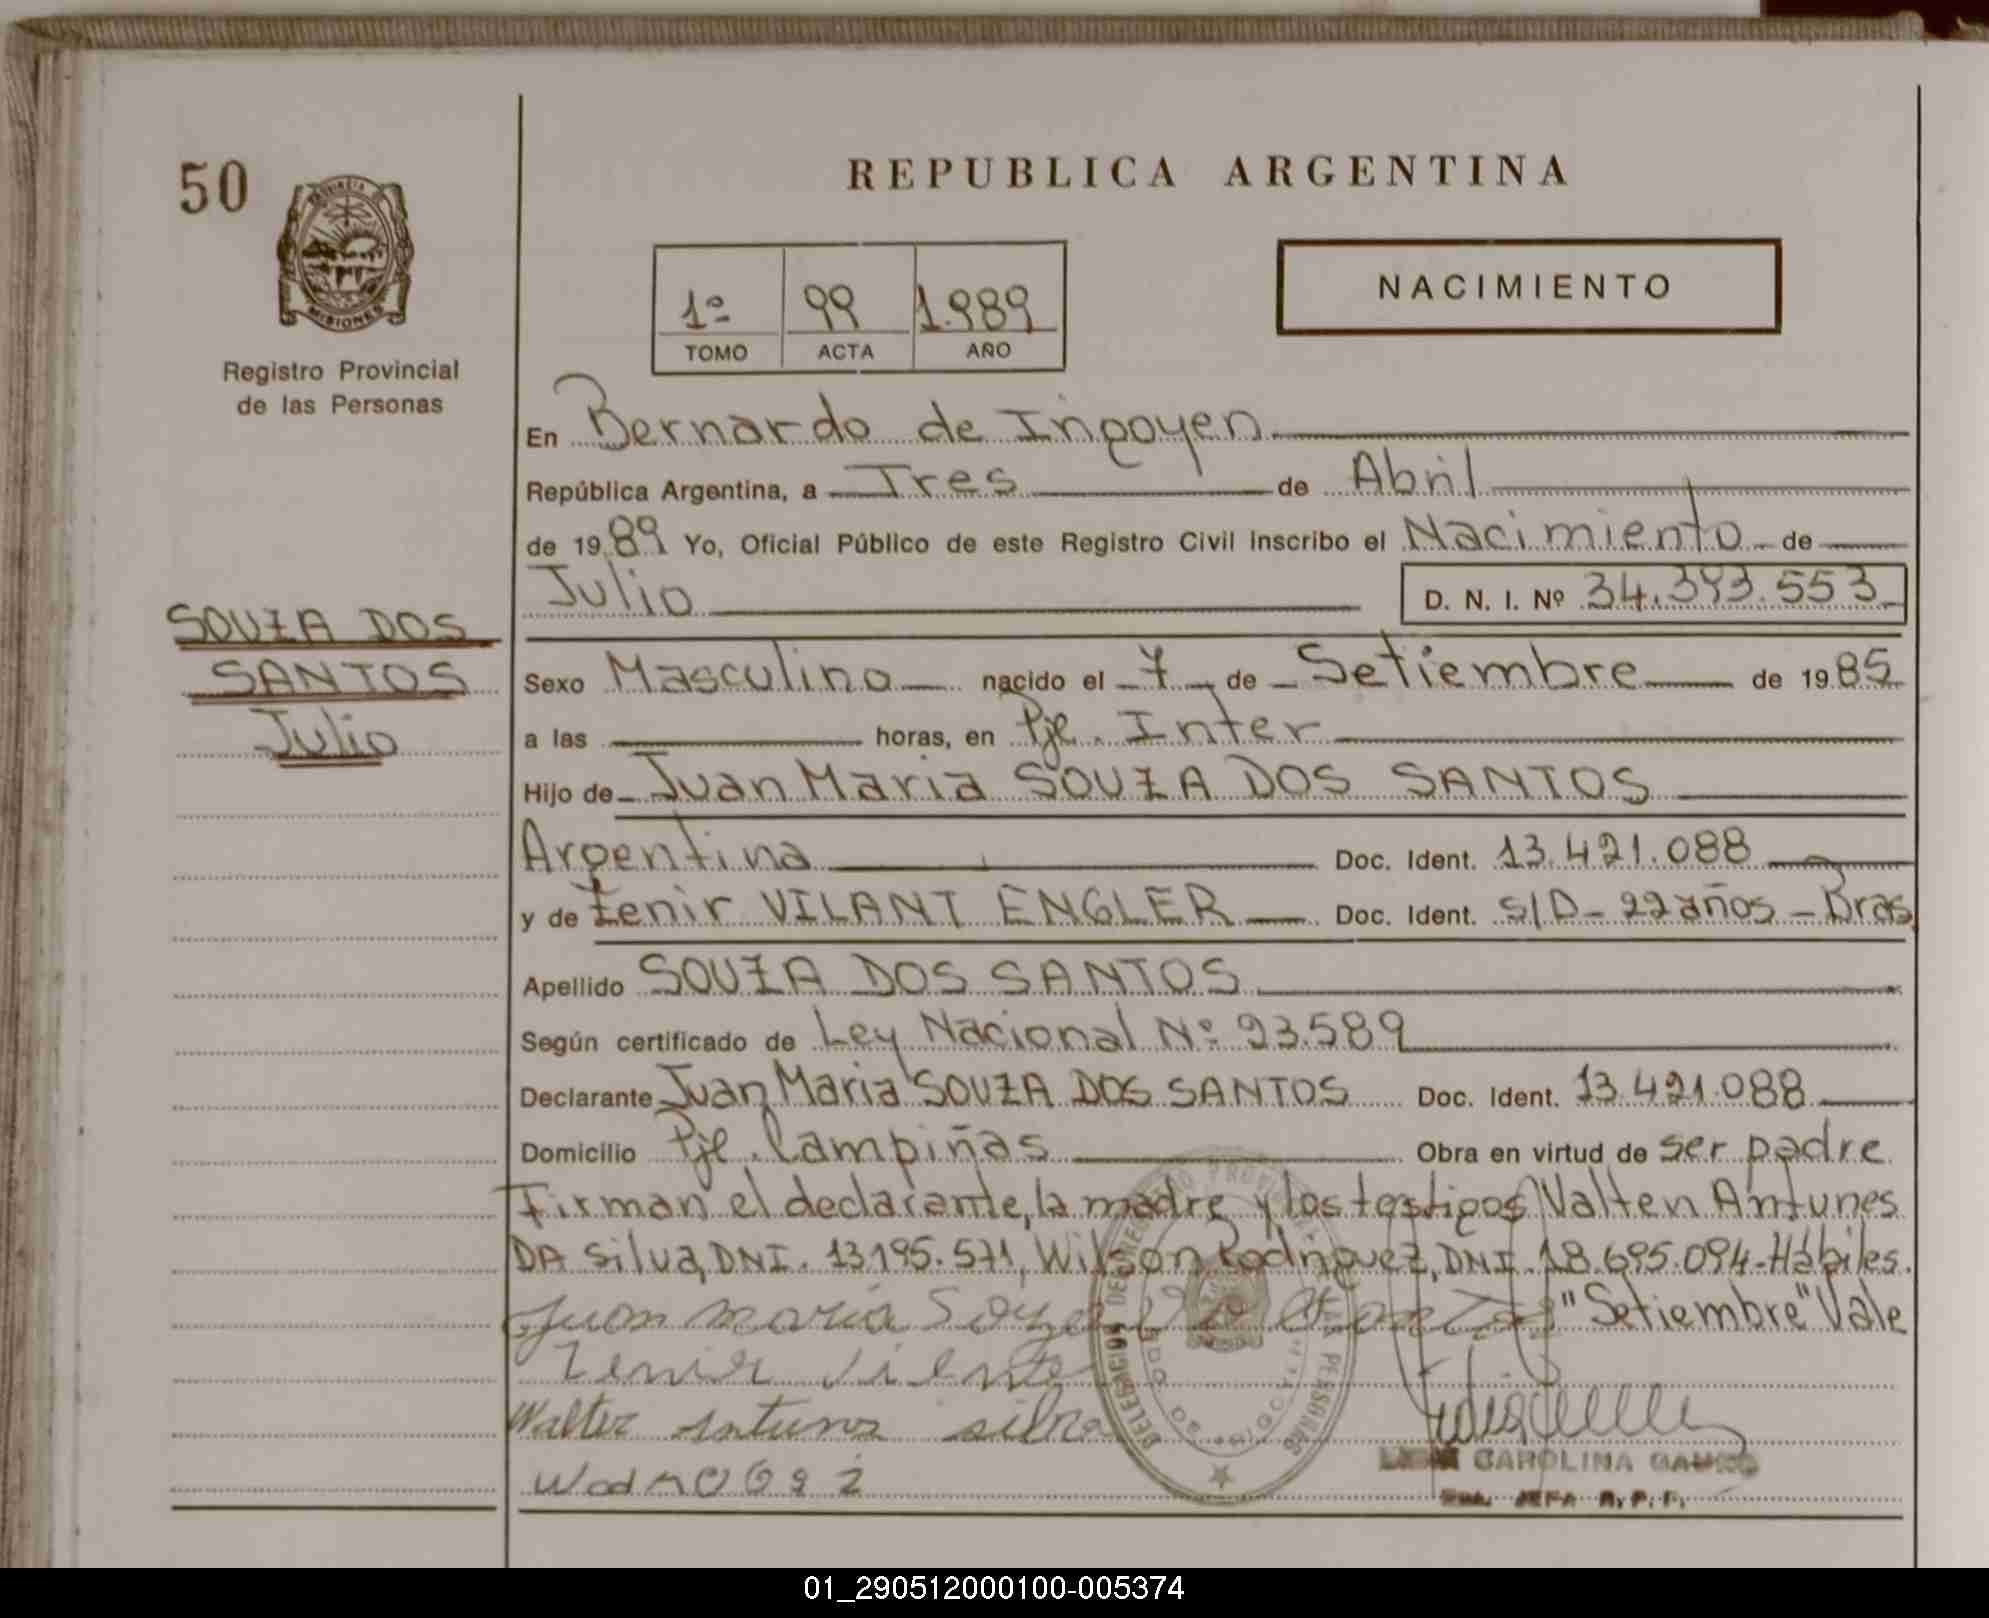 50
REPUBLICA ARGENTINA
MISIONES
Registro Provincial
de las Personas
1º 99 1.989
TOMO ACTA AÑO
NACIMIENTO
En Bernardo de Irigoyen
República Argentina, a Tres de Abril
de 19 89 Yo, Oficial Público de este Registro Civil inscribo el Nacimiento de
Julio D. N. I. Nº 34.393.553
SOUZA DOS
SANTOS
Julio
Sexo Masculino nacido el 7 de Setiembre de 19 85
a las horas, en Pje. Inter
Hijo de Juan Maria SOUZA DOS SANTOS
Argentina Doc. Ident. 13.421.088
y de Zenir VILANT ENGLER Doc. Ident. S/D - 22 años - Bras
Apellido SOUZA DOS SANTOS
Según certificado de Ley Nacional Nº 23.589
Declarante Juan Maria SOUZA DOS SANTOS Doc. Ident. 13.421.088
Domicilio Pje. Campiñas Obra en virtud de ser padre
Firman el declarante, la madre y los testigos Valten Antunes
DA Silva, DNI. 13.195.571, Wilson Rodriguez, DNI. 18.695.094 - Hábiles.
Juan maria "Setiembre" Vale
Zenir
Walter antunes silva
CAROLINA
JEFA R. P. P.
01_290512000100-005374